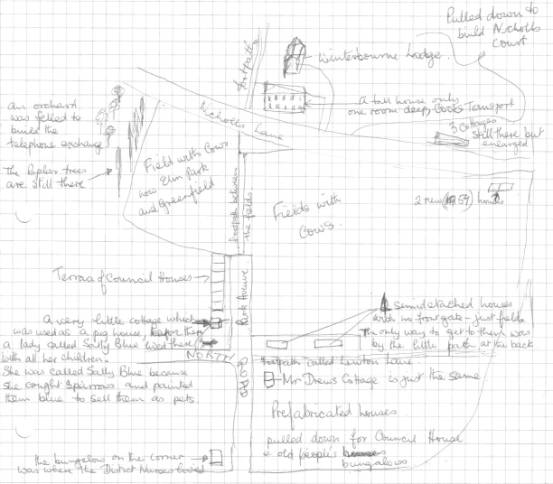 Pulled down to
build Nicholls
Court
footpath
Winterbourne Lodge.
A tall house only
one room deep, Cooks Transport
3 Cottages
still there but
enlarged
An orchard
was felled to
build the
telephone exchange
Nicholls Lane
The Poplar trees
are still there
Field with Cows
now Elm Park
and Greenfield
footpath between
the fields
Fields with
Cows
2 new (1959) houses
Terrace of Council Houses
Park Avenue
A very little cottage which
was used as a pig house, before then
a lady called Sally Blue lived there
with all her children.
She was called Sally Blue because
she caught sparrows and painted
them blue to sell them as pets.
4 semidetached houses
with no front gate - just fields
The only way to get to them was
by the little path at the back
NORTH
ROAD
footpath called Lawton Lane
Mr Drews Cottage is just the same
Prefabricated houses
pulled down for Council House
& old people's
bungalows
the bungalow on the corner
was where the District Nurses lived